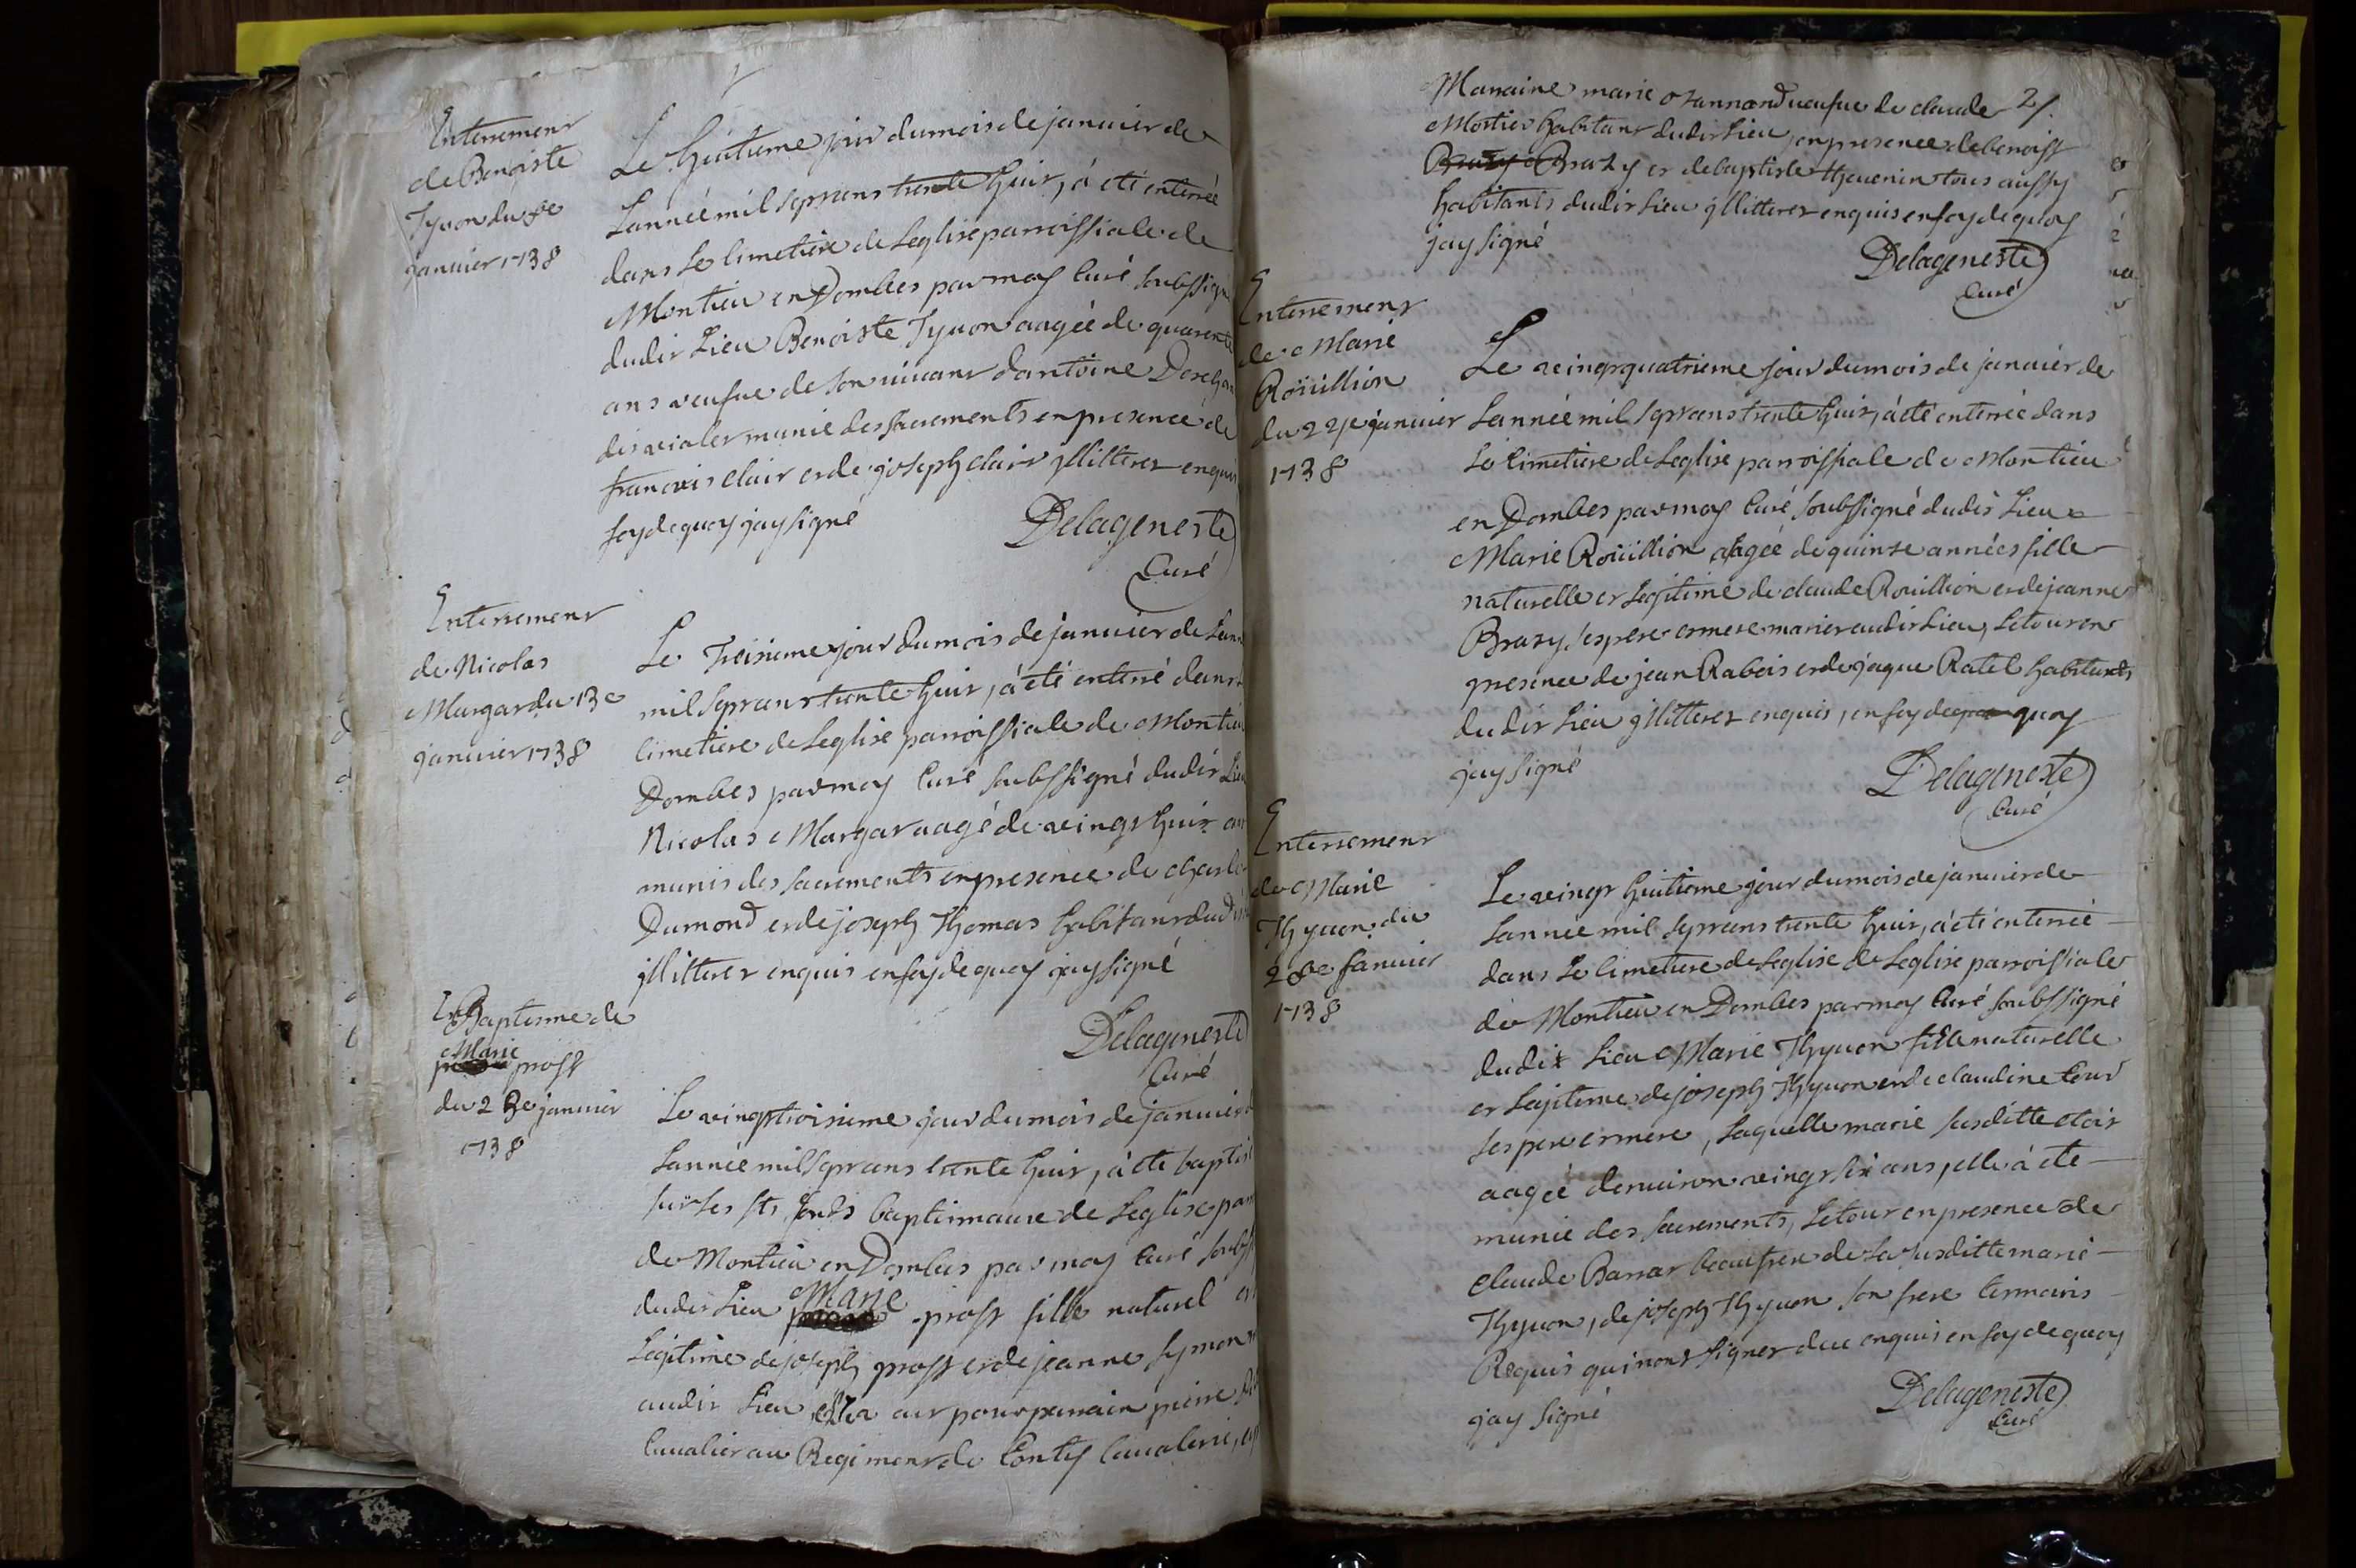 Enterrement
de Benoiste
Tyuon du 8e
januier 1738
Le huitieme jour du mois de januier de
Lannée mil sept cens trente huit, à eté enterrée
dans Le Cimetiere de Leglise parroissiale de
Montieu en Dombes par moy Curé soubssigné
dudit Lieu Benoiste Tyuon aagée de quarente
ans veufue de son viuant dantoine
munie des sacrements en presence de
francois Clair et de joseph clair jllitterez enquis
foy de quoy jay signé
Delageneste
Curé
Enterrement
de Nicolas
Margar du 13e
januier 1738
Le Treisieme jour du mois de januier de Lann
mil sept cens trente huit, à eté enterré dans
Cimetiere de Leglise parroissiale de Montieu
Dombes par moy Curé soubssigné dudit Lieu
Nicolas Margar aagé de vingt huit ans
munis des sacrements en presence de charle
Dumond et de joseph Thomas habitans dudit
jllitterez enquis en foy de quoy jay signé
Delageneste
Curé
Baptesme de
Marie
prost
du 23e januier
1738
Le vingt troisieme jour du mois de januier
Lannée mil sept cens trente huit, à eté baptisé
sur les sts fonds baptismaux de Leglise par
de Montieu en Dombes par moy Curé soubs
dudit Lieu Marie prost fille naturel et
Legitime de joseph prost et de jeanne symon
audit Lieu elle a eut pour parrain pierre
Caualier au Regiment de Conty Caualerie, et
Marraine marie veufue de claude 2/.
Mortier habitant dudit Lieu, en presence de benoist
Brazy Brazy et de baptiste theuenin tous aussy
habitants dudit Lieu jllitterez enquis en foy de quoy
jay signé
Delageneste
Curé
Enterrement
de Marie
Roüillion
du 24e januier
1738
Le vingt quatrieme jour du mois de januier de
Lannée mil sept cens trente huit, à eté enterrée dans
Le Cimetiere de Leglise parroissiale de Montieu
en Dombes par moy Curé soubssigné dudit Lieu
Marie Roüillion aagée de quinse années fille
naturelle et Legitime de claude Roüillion et de jeanne
Brazy, ses pere et mere mariez audit Lieu, Le tout en
presence de jean Rabois et de jaque Ratel habitants
dudit Lieu jllitterez enquis, en foy de quoy
jay signé
Delageneste
Curé
Enterrement
de Marie
Thyuon, du
28e januier
1738
Le vingt huitieme jour du mois de januier de
Lannee mil sept cens trente huit, à eté enterrée
dans Le Cimetiere de Leglise de Leglise parroissiale
de Montieu en Dombes par moy Curé soubssigné
dudit Lieu Marie Thyuon fille naturelle
et Legitime de joseph Thyuon et de claudine Cour
ses pere et mere, Laquelle marie susditte etoit
aagée denuiron vingt six ans, elle à eté
munie des sacrements, Le tout en presence de
Claude Barrar beaufrere de La susditte marie
Thyuon, de joseph Thyuon son frere temoins
Requis qui nont signer deue enquis en foy de quoy
jay signé
Delageneste
Curé